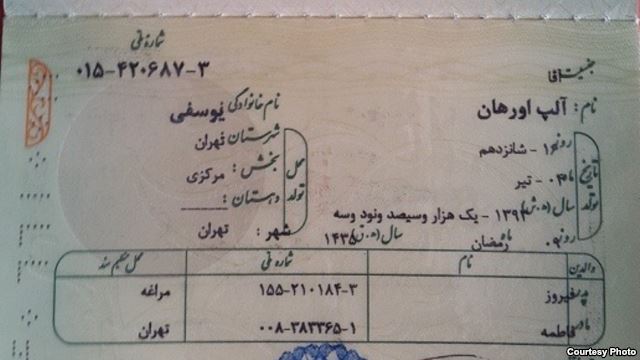 شماره ملی
۰۱۵-۴۲۰۶۸۷-۳
جنسیت: آقا
نام: آلپ اورهان
نام خانوادگی: یوسفی
تاریخ تولد
روز: ۱۶ - شانزدهم
ماه: ۰۴ - تیر
سال (ه.ش): ۱۳۹۳ - یک هزار وسیصد ونود وسه
روز: ۰۹ ماه: رمضان سال (ه.ق): ۱۴۳۵
محل تولد
شهرستان: تهران
بخش: مرکزی
دهستان:
شهر: تهران
والدین نام شماره ملی محل تنظیم سند
پدر فیروز ۱۵۵-۲۱۰۱۸۴-۳ مراغه
مادر فاطمه ۰۰۸-۳۸۳۳۶۵-۱ تهران
Courtesy Photo